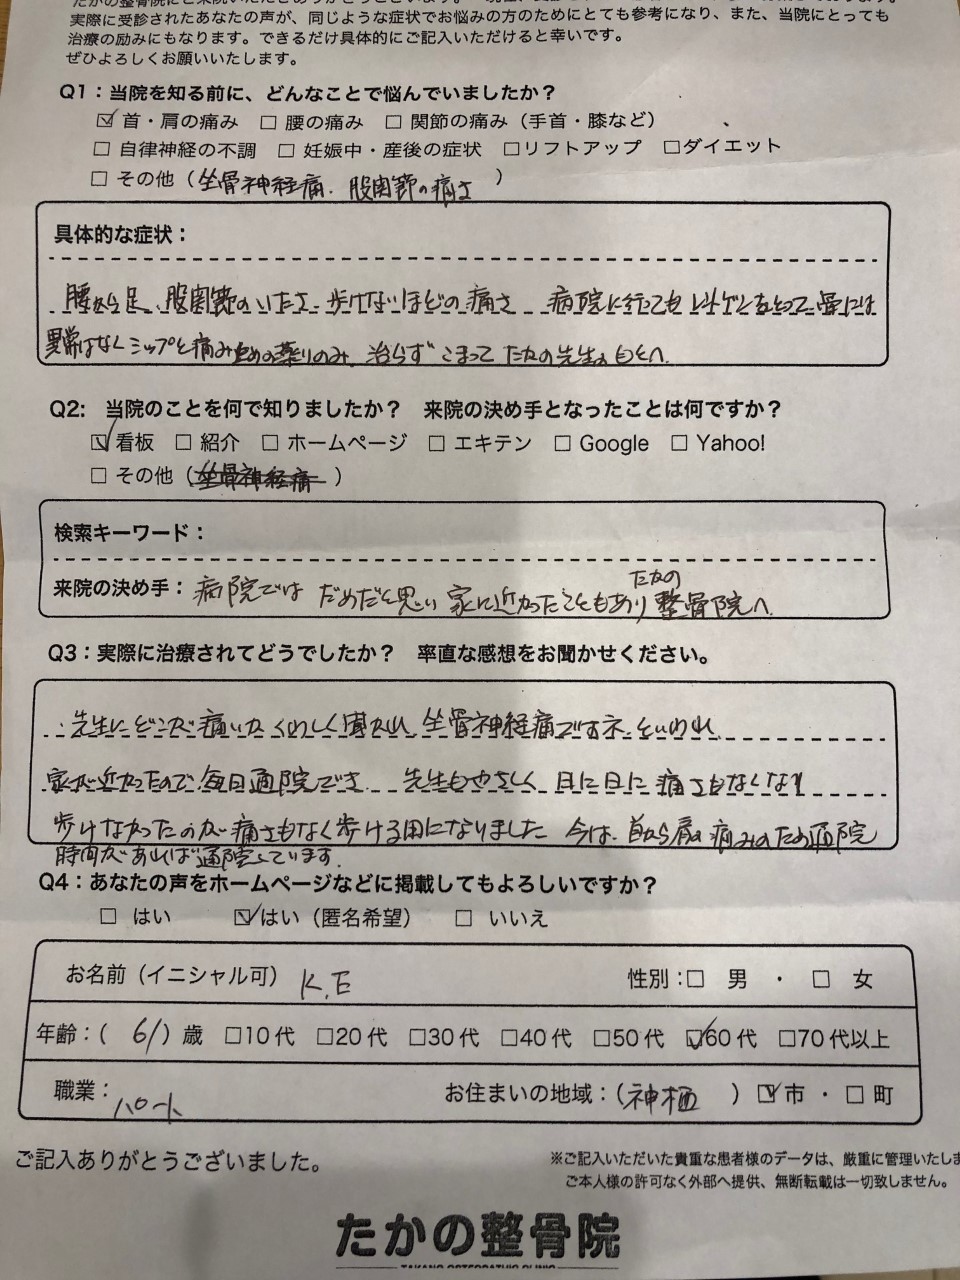 実際に受診されたあなたの声が、同じような症状でお悩みの方のためにとても参考になり、また、当院にとっても
治療の励みにもなります。できるだけ具体的にご記入いただけると幸いです。
ぜひよろしくお願いいたします。
Q1：当院を知る前に、どんなことで悩んでいましたか？
☑ 首・肩の痛み □ 腰の痛み □ 関節の痛み（手首・膝など）
□ 自律神経の不調 □ 妊娠中・産後の症状 □リフトアップ □ダイエット
□ その他（坐骨神経痛. 股関節の痛さ）
具体的な症状：
腰から足、股関節のいたさ、歩けないほどの痛さ 病院に行っても レントゲンをとって骨には
異常はなくシップと痛み止めの薬のみ、治らずこまって たかの先生の
Q2: 当院のことを何で知りましたか？ 来院の決め手となったことは何ですか？
☑ 看板 □ 紹介 □ ホームページ □ エキテン □ Google □ Yahoo!
□ その他（坐骨神経痛）
検索キーワード：
来院の決め手：病院では だめだと思い 家に近かったこともあり たかの整骨院へ.
Q3：実際に治療されてどうでしたか？ 率直な感想をお聞かせください。
先生にどこが痛いか くわしく聞かれ、坐骨神経痛ですネ といわれ
家が近かったので 毎日通院でき、先生もやさしく 日に日に 痛さもなくなり
歩けなかったのが 痛さもなく歩ける用になりました 今は、首から肩の痛みのため通院
時間があれば通院しています.
Q4：あなたの声をホームページなどに掲載してもよろしいですか？
□ はい ☑はい（匿名希望） □ いいえ
お名前（イニシャル可） K.E 性別：□ 男 ・ □ 女
年齢：（ 61 ）歳 □10代 □20代 □30代 □40代 □50代 ☑60代 □70代以上
職業：パート お住まいの地域：（神栖 ）☑市・□町
ご記入ありがとうございました。
※ご記入いただいた貴重な患者様のデータは、厳重に管理いたしま
ご本人様の許可なく外部へ提供、無断転載は一切致しません。
たかの整骨院
TAKANO OSTEOPATHIC CLINIC